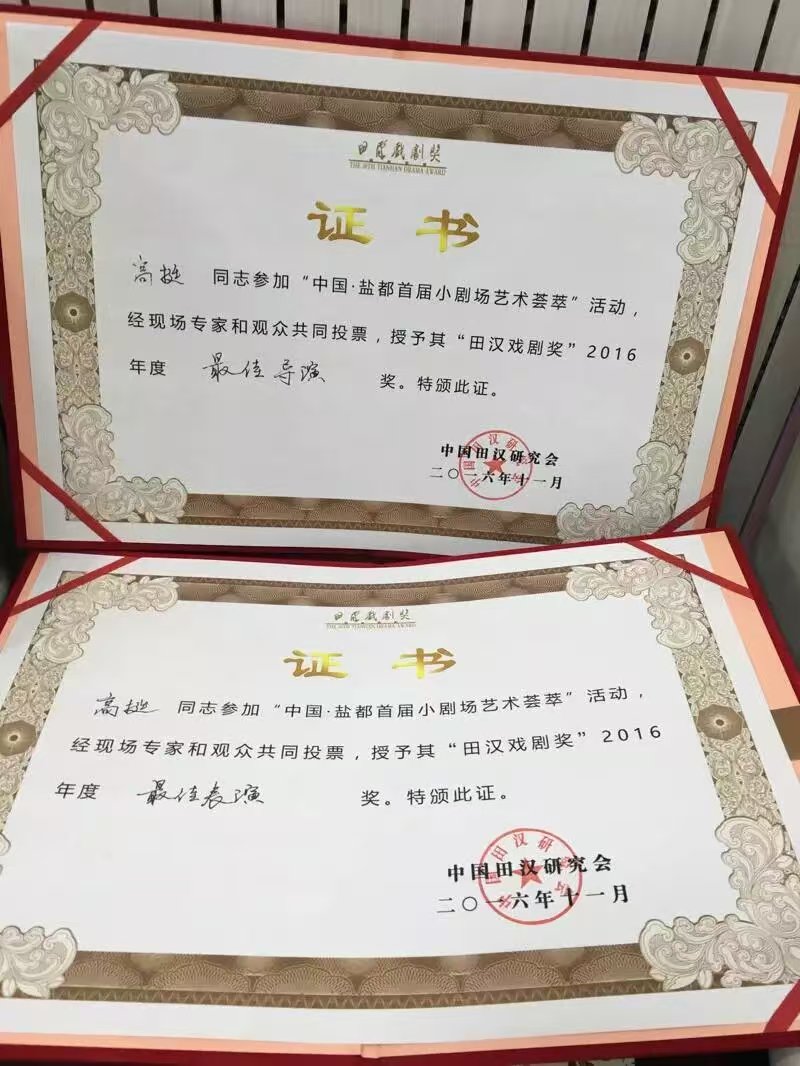 田汉戏剧奖
THE 30TH TIANHAN DRAMA AWARD
证书
高挺 同志参加“中国·盐都首届小剧场艺术荟萃”活动，
经现场专家和观众共同投票，授予其“田汉戏剧奖”2016
年度 最佳导演 奖。特颁此证。
中国田汉研究会
二〇一六年十一月
中国田汉研究会
田汉戏剧奖
证书
高挺 同志参加“中国·盐都首届小剧场艺术荟萃”活动，
经现场专家和观众共同投票，授予其“田汉戏剧奖”2016
年度 最佳表演 奖。特颁此证。
中国田汉研究会
二〇一六年十一月
中国田汉研究会